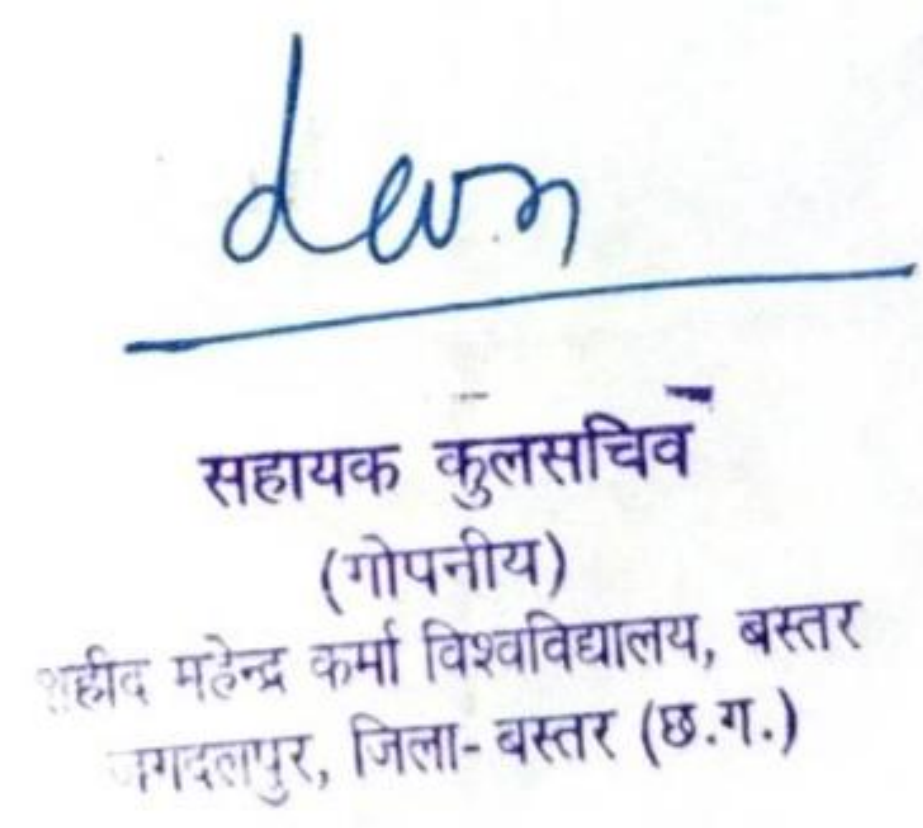 सहायक कुलसचिव
(गोपनीय)
शहीद महेन्द्र कर्मा विश्वविद्यालय, बस्तर
जगदलपुर, जिला- बस्तर (छ.ग.)